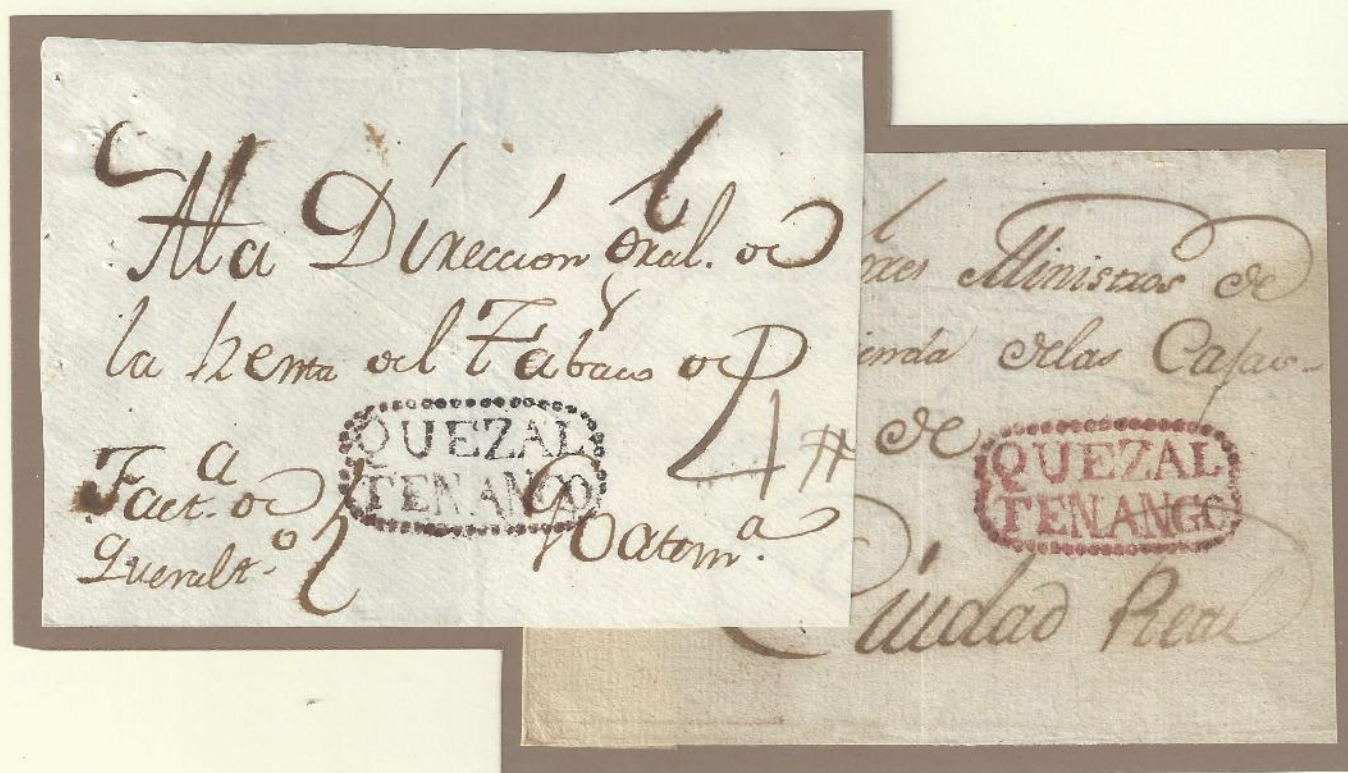 A la Dirección Gral. de
la Renta del Tabaco de
4#
QUEZAL
TENANGO
Fact.a de
Goatem.a
Ministros de
de las Cajas-
de
QUEZAL
TENANGO
Ciudad Real